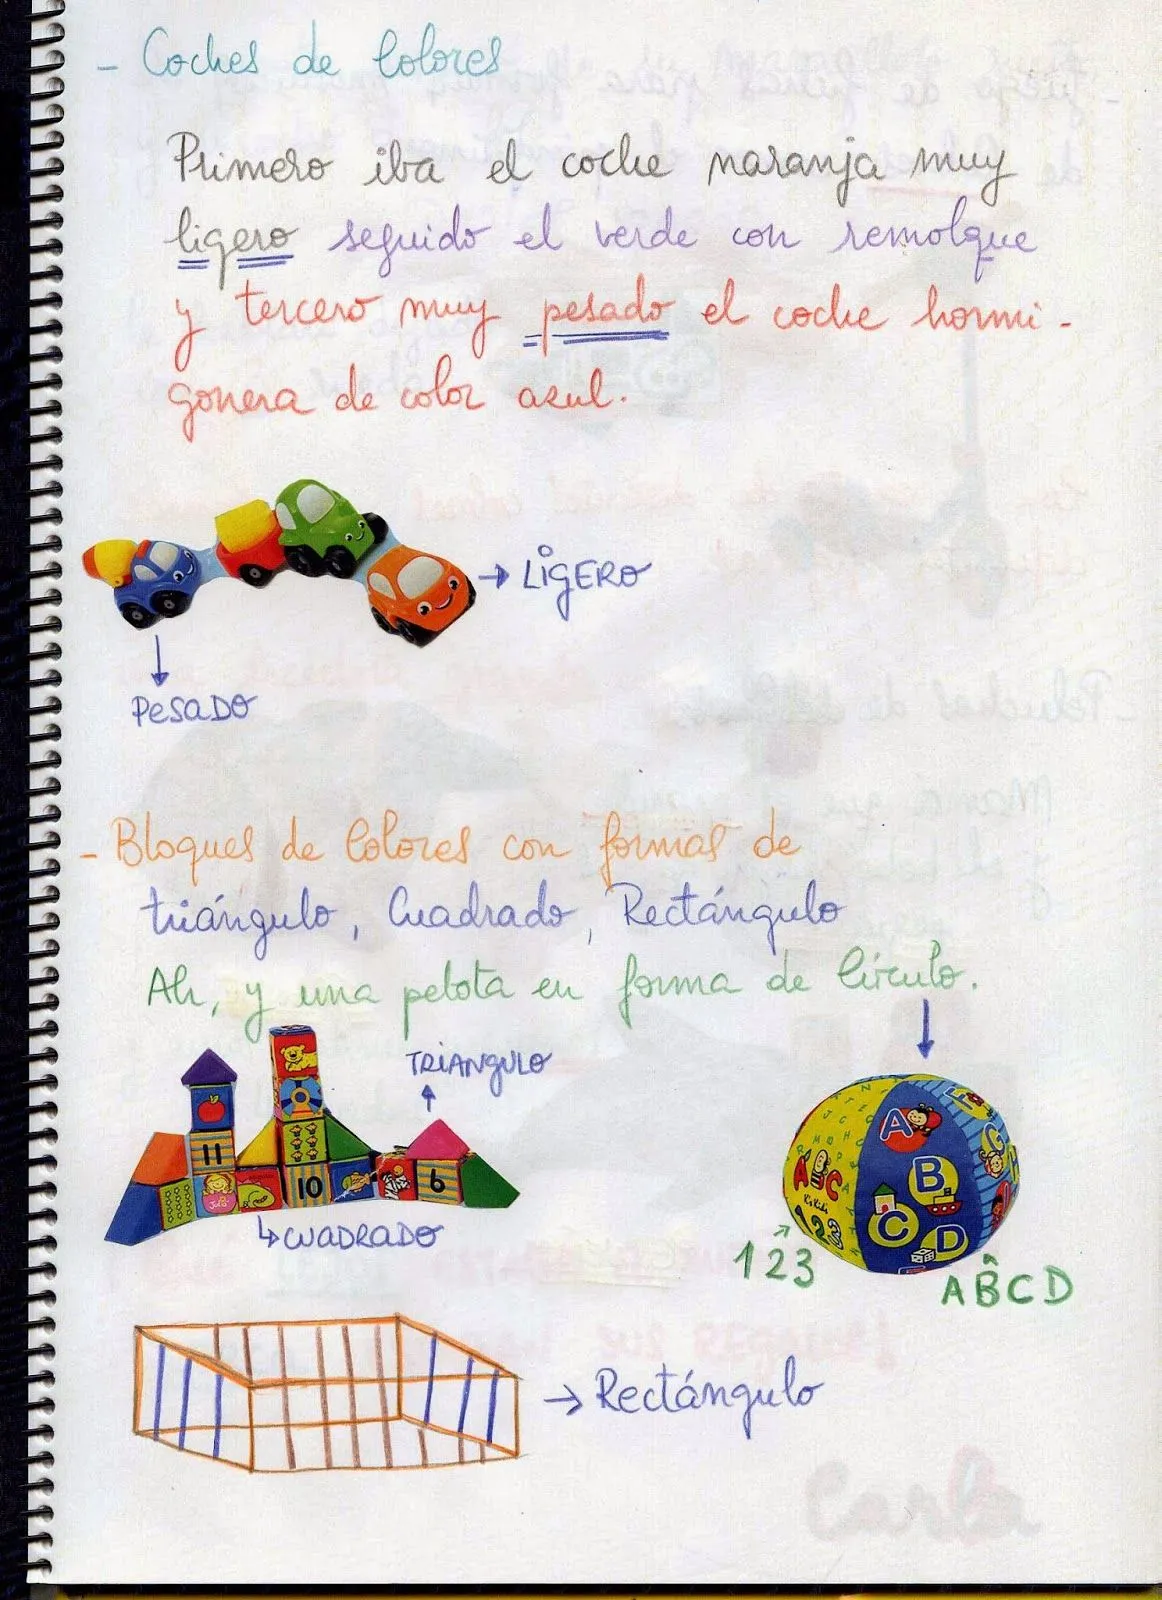 - Coches de Colores
Primero iba el coche naranja muy
ligero seguido el verde con remolque
y tercero muy pesado el coche hormi-
gonera de color azul.
→ LIGERO
PESADO
- Bloques de Colores con formas de
triángulo, Cuadrado, Rectángulo
Ah, y una pelota en forma de Círculo.
TRIANGULO
11
10
6
CUADRADO
A
B
C
D
A C
1 2 3
123
ABCD
→ Rectángulo
Carla